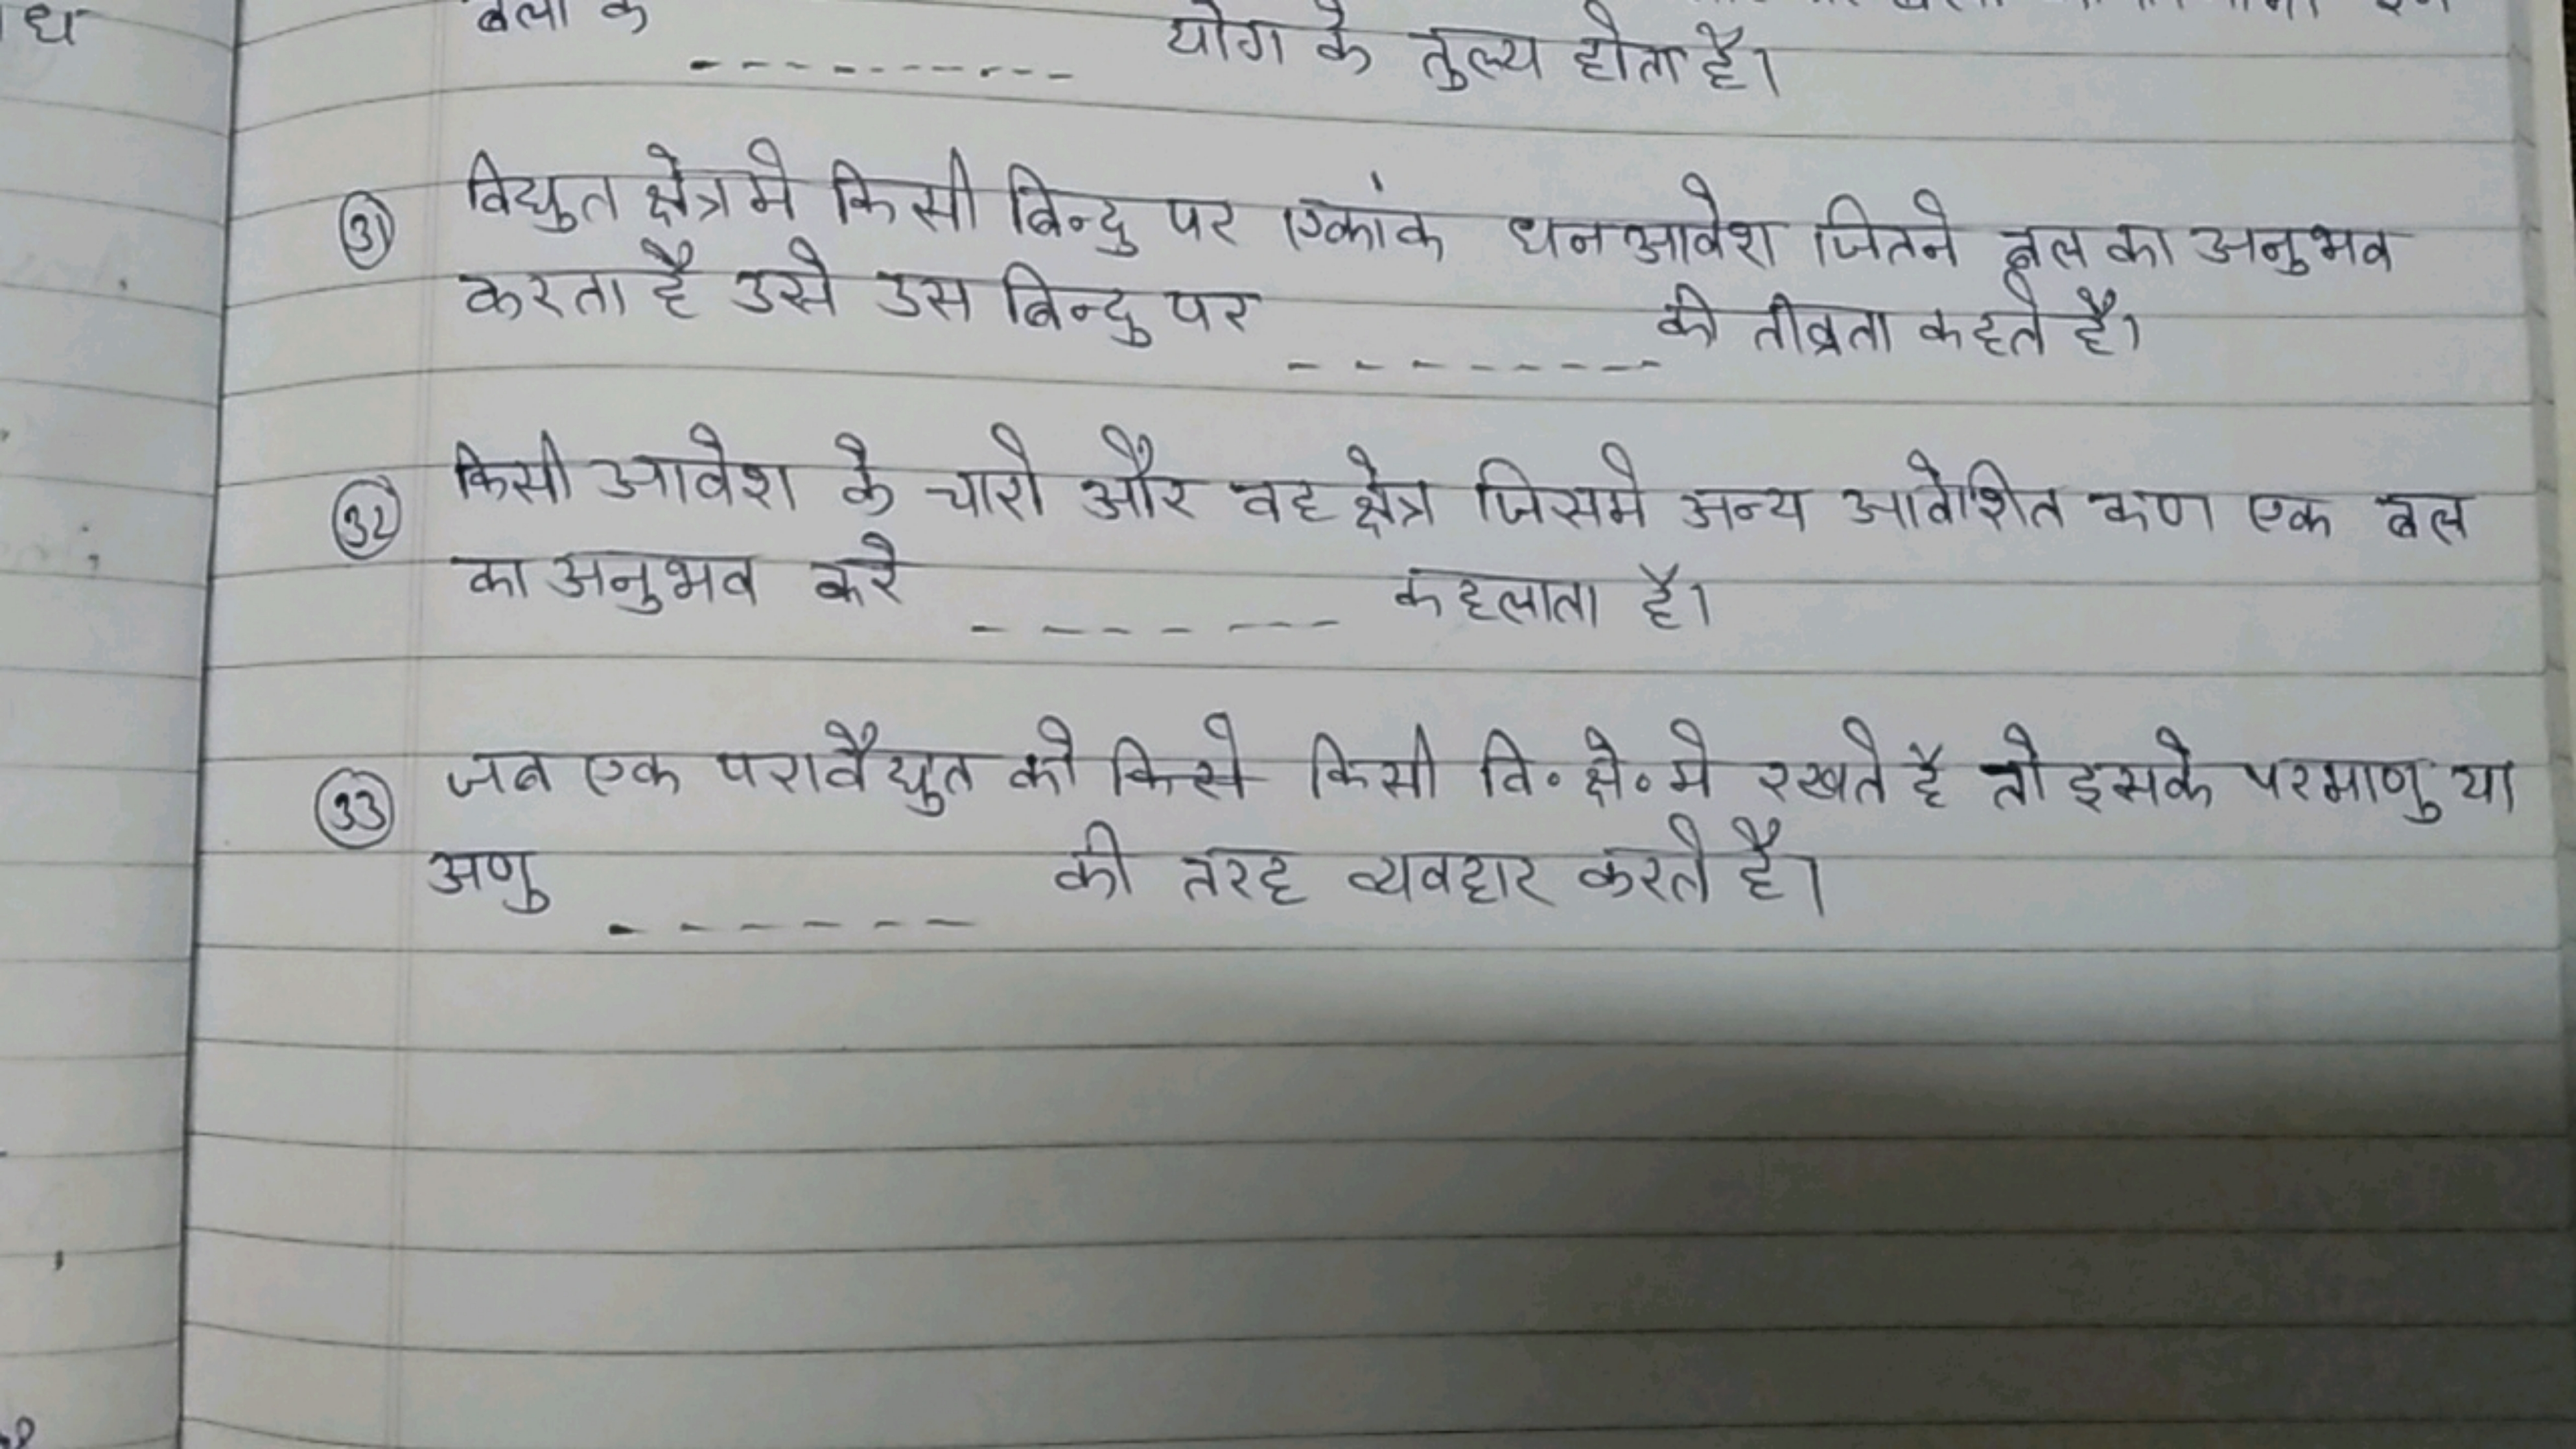 बलो के ---------- योग के तुल्य होता है।
(31) विद्युत क्षेत्र मे किसी बिन्दु पर एकांक धन आवेश जितने बल का अनुभव
करता है उसे उस बिन्दु पर ------- की तीव्रता कहते है।
(32) किसी आवेश के चारो और वह क्षेत्र जिसमे अन्य आवेशित कण एक बल
का अनुभव करे ------- कहलाता है।
(33) जब एक परावैद्युत को किसे किसी वि॰ क्षे॰ मे रखते है तो इसके परमाणु या
अणु ------ की तरह व्यवहार करते है।